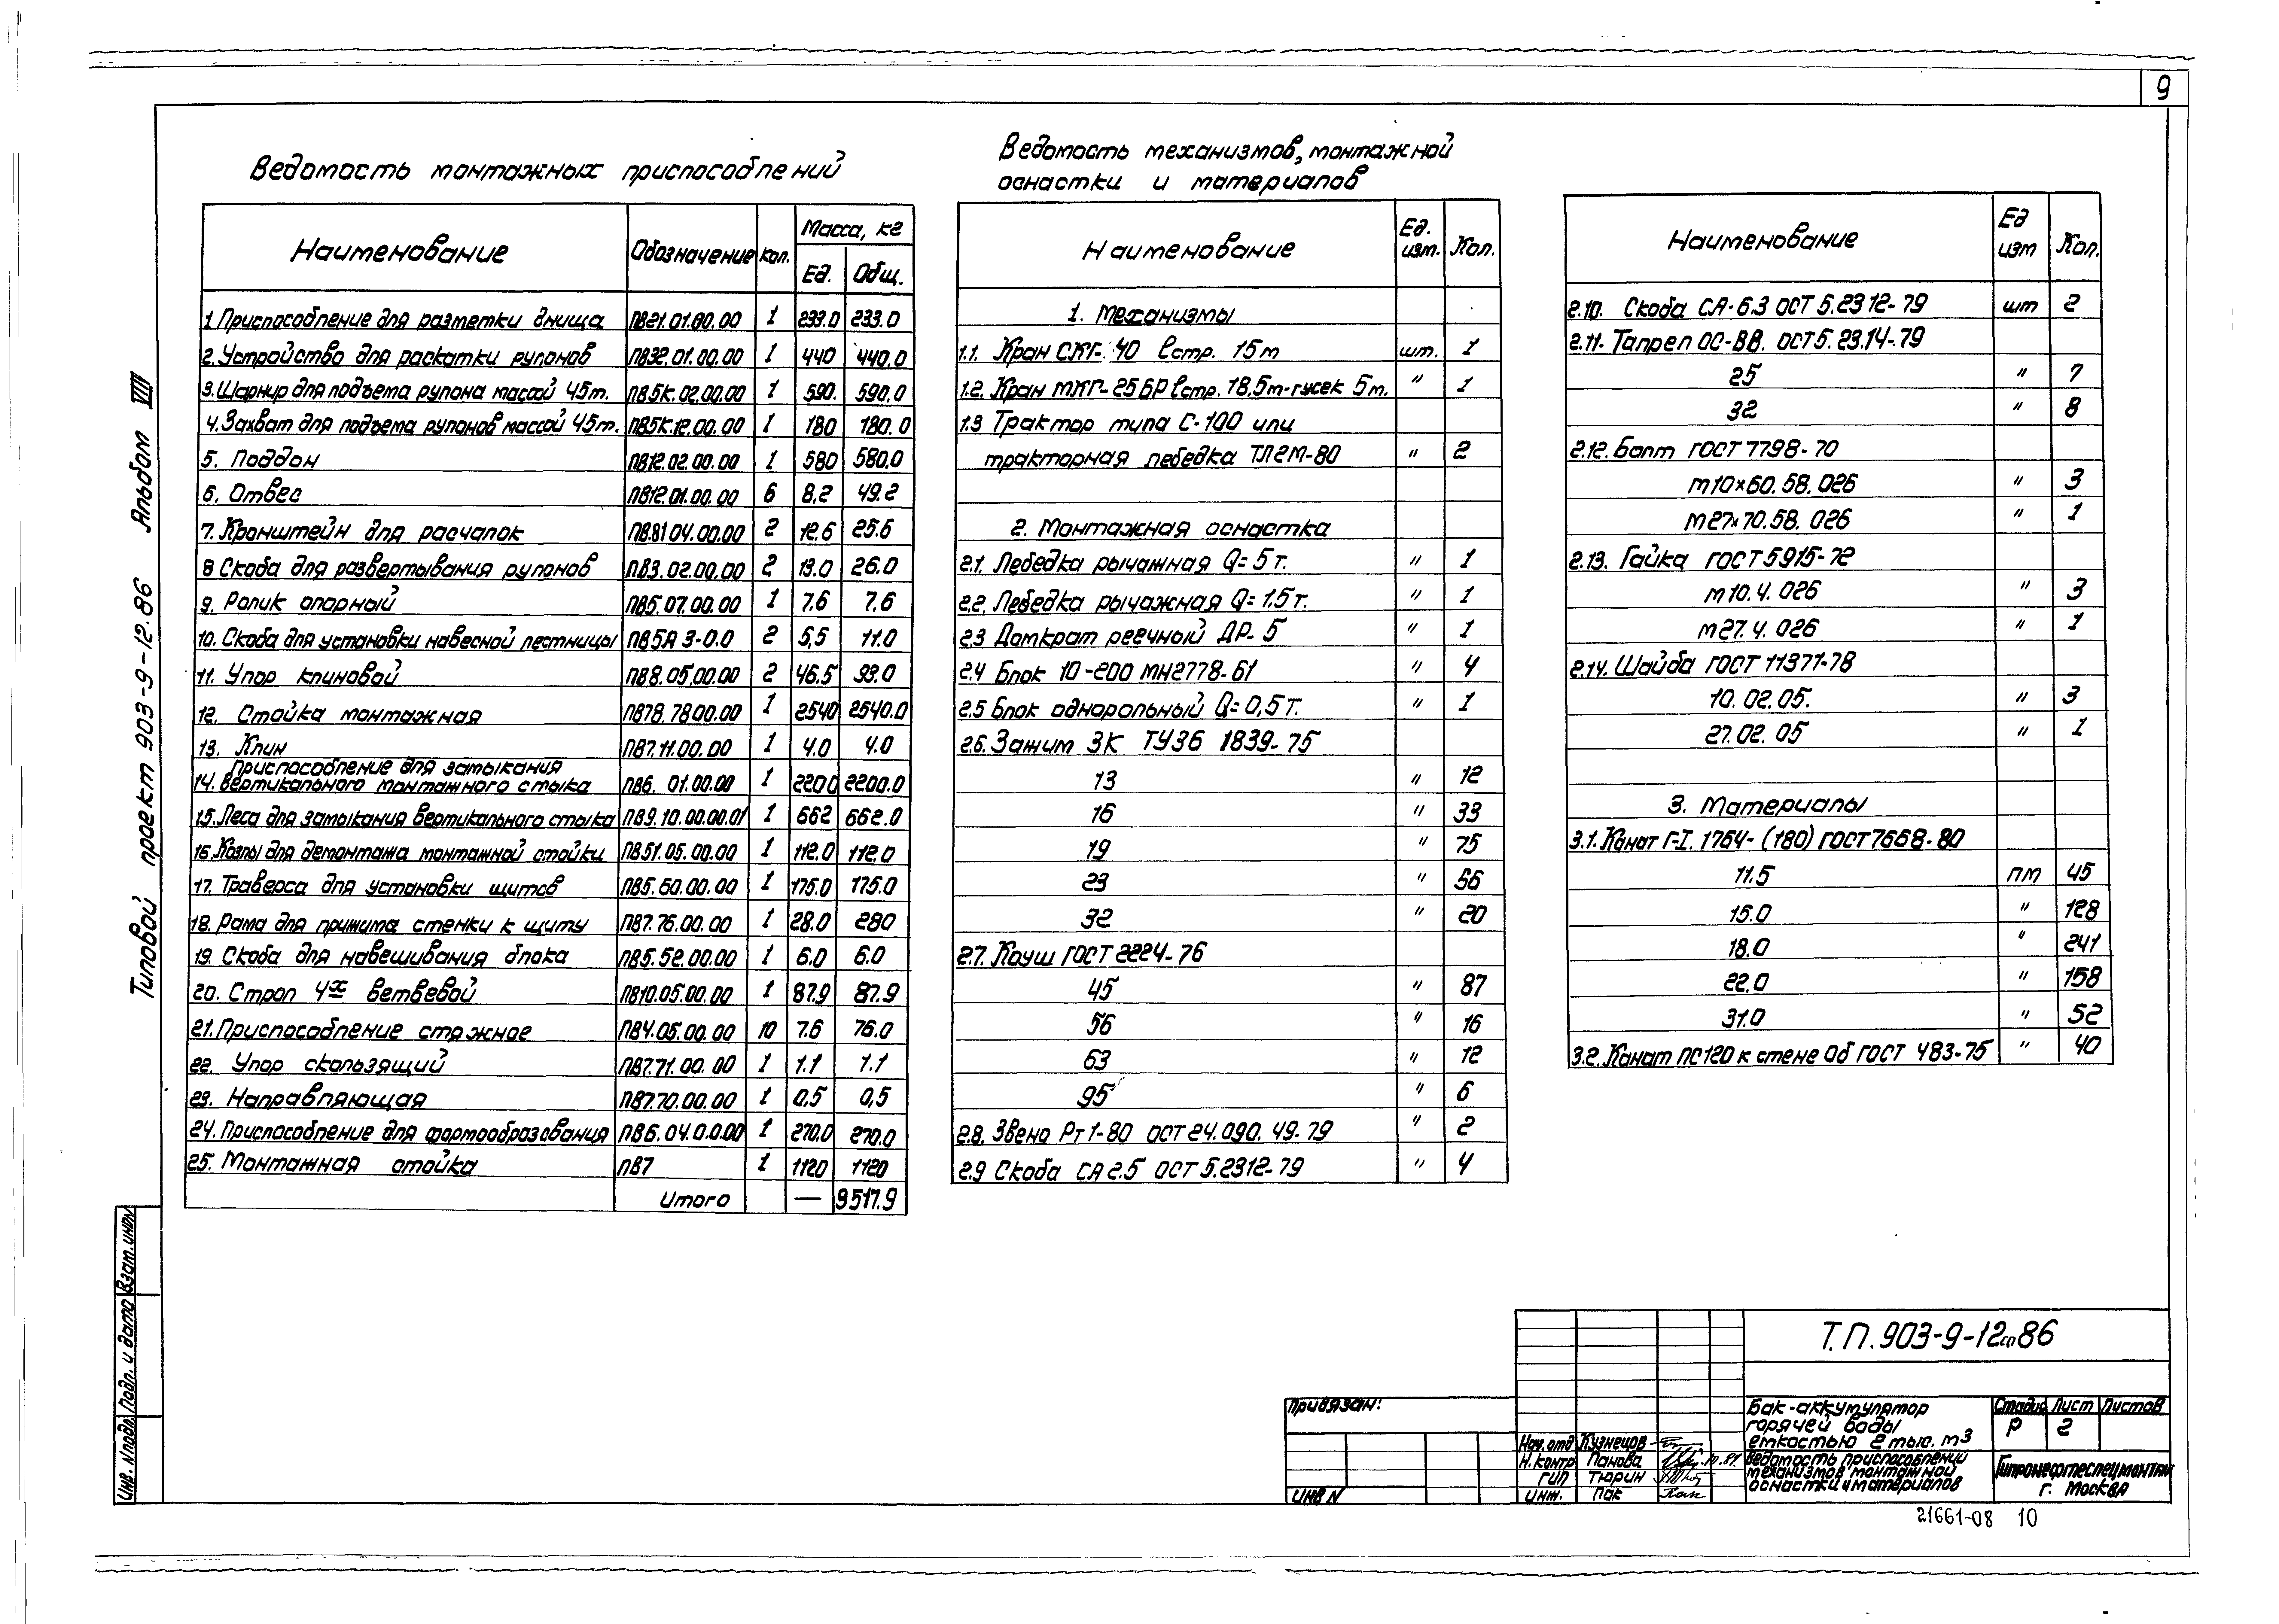 9
Типовой проект 903-9-12.86 Альбом VIII
Ведомость монтажных приспособлений
Наименование Обозначение кол. Масса, кг
Ед. Общ.
1 Приспособление для разметки днища ПВ21.01.80.00 1 233.0 233.0
2. Устройство для раскатки рулонов ПВ32.01.00.00 1 440 440.0
3. Шарнир для подъема рулона массой 45т. ПВ5К.02.00.00 1 590. 590.0
4. Захват для подъема рулонов массой 45т. ПВ5К.12.00.00 1 180 180.0
5. Поддон ПВ12.02.00.00 1 580 580.0
6. Отвес ПВ12.01.00.00 6 8,2 49.2
7. Кронштейн для расчалок ПВ.81 04.00.00 2 12.6 25.6
8 Скоба для развертывания рулонов ПВ3.02.00.00 2 13.0 26.0
9. Ролик опорный ПВ5.07.00.00 1 7.6 7.6
10. Скоба для установки навесной лестницы ПВ5А 3-0.0 2 5,5 11.0
11. Упор клиновой ПВ8.05.00.00 2 46.5 93.0
12. Стойка монтажная ПВ78.78 00.00 1 2540 2540.0
13. Клин ПВ7.11.00.00 1 4.0 4.0
14. Приспособление для замыкания
вертикального монтажного стыка ПВ6. 01.00.00 1 2200 2200.0
15. Леса для замыкания вертикального стыка ПВ9.10.00.00.01 1 662 662.0
16. Козлы для демонтажа монтажной стойки ПВ51.05.00.00 1 112.0 112.0
17. Траверса для установки щитов ПВ5.60.00.00 1 175.0 175.0
18. Рама для прижима стенки к щиту ПВ7.76.00.00 1 28.0 280
19. Скоба для навешивания блока ПВ5.52.00.00 1 6.0 6.0
20. Строп 4х ветвевой ПВ10.05.00.00 1 87.9 87.9
21. Приспособление стяжное ПВ4.05.00.00 10 7.6 76.0
22. Упор скользящий ПВ7.71.00.00 1 1.1 1.1
23. Направляющая ПВ7.70.00.00 1 0,5 0,5
24. Приспособление для формообразования ПВ6.04.0.0.00 1 270.0 270.0
25. Монтажная стойка ПВ7 1 1120 1120
Итого — 9517.9
Ведомость механизмов, монтажной
оснастки и материалов
Наименование Ед. изм. Кол.
1. Механизмы
1.1. Кран СКГ- 40 lстр. 15м шт. 1
1.2. Кран МКГ-25БР lстр. 18,5м-гусек 5м. " 1
1.3 Трактор типа С-100 или
тракторная лебедка ТЛ2М-80 " 2
2. Монтажная оснастка
2.1. Лебедка рычажная Q=5т. " 1
2.2. Лебедка рычажная Q=1,5т. " 1
2.3 Домкрат реечный ДР-5 " 1
2.4 Блок 10-200 МН2778-61 " 4
2.5 Блок однорольный Q=0,5т. " 1
2.6. Зажим ЗК ТУ36 1839-75
13 " 12
16 " 33
19 " 75
23 " 56
32 " 20
2.7. Коуш ГОСТ 2224-76
45 " 87
56 " 16
63 " 12
95 " 6
2.8. Звено Рт1-80 ОСТ 24.090.49-79 " 2
2.9 Скоба СА 2.5 ОСТ 5.2312-79 " 4
Наименование Ед изм Кол.
2.10. Скоба СА-6.3 ОСТ 5.2312-79 шт 2
2.11. Талреп ОС-ВВ. ОСТ 5.23.14-79
25 " 7
32 " 8
2.12. Болт ГОСТ 7798-70
М10×60.58.026 " 3
М27×70.58.026 " 1
2.13. Гайка ГОСТ 5915-72
М10.4.026 " 3
М27.4.026 " 1
2.14. Шайба ГОСТ 11371-78
10.02.05. " 3
27.02.05 " 1
3. Материалы
3.1. Канат Г-I. 1764-(180) ГОСТ 7668-80
11.5 пм 45
15.0 " 128
18.0 " 241
22.0 " 158
31.0 " 52
3.2. Канат ПС120 к стене Об ГОСТ 483-75 " 40
Инв. N подл. Подп. и дата Взам. инв N
Привязан:
Инв N
Т.П. 903-9-12сп86
Нач. отд Кузнецов
Н. контр Панова
ГИП Тюрин
Инж. Пак
Бак-аккумулятор
горячей воды
емкостью 2 тыс. м3
Стадия Лист Листов
Р 2
Ведомость приспособлений
механизмов монтажной
оснастки и материалов
Гипронефтеспецмонтаж
г. Москва
21661-08 10